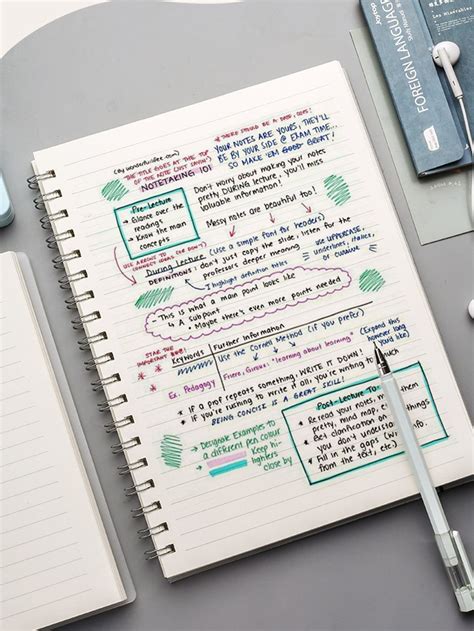 (By wonderfulife.com)
* THERE SHOULD BE A DATE, TOO!
THE TITLE GOES AT THE TOP
OF THE NOTE (JUST SAYIN')
NOTETAKING 101
YOUR NOTES ARE YOURS, THEY'LL
BE BY YOUR SIDE @ EXAM TIME...
SO MAKE 'EM GOOD GREAT!
Pre-Lecture
→ Glance over the
readings
→ Know the main
concepts
Don't worry about making your notes
pretty DURING lecture, you'll miss
valuable information!
Messy notes are beautiful too!
USE ARROWS TO
CONNECT IDEAS (OR DON'T)
During Lecture (use a simple font for headers)
DEFINITIONS: don't just copy the slide, listen for the
professors deeper meaning
I highlight definition titles
USE UPPERCASE,
underlines, italics,
or cursive
→ This is what a main point looks like
↳ A Subpoint
• Maybe there's even more points needed
STAR THE
IMPORTANT
Keywords | Further Information
* Use the Cornell Method (if you prefer)
Ex: Pedagogy
"Learning about learning"
(Expand this
however long
you'd like)
* If a prof repeats something, WRITE IT DOWN!
* If you're rushing to write it all, you're writing too much
BEING CONCISE IS A GREAT SKILL!
→ Designate Examples to
a different pen colour
Keep hi-
lighters
close by
Post-Lecture To
→ Read your notes, make them
pretty, mind map, things
→ Get clarification on
you don't understand
→ Fill in the gaps (w/ info
from the text, etc)
FOREIGN LANGUAGE
Les Misérables